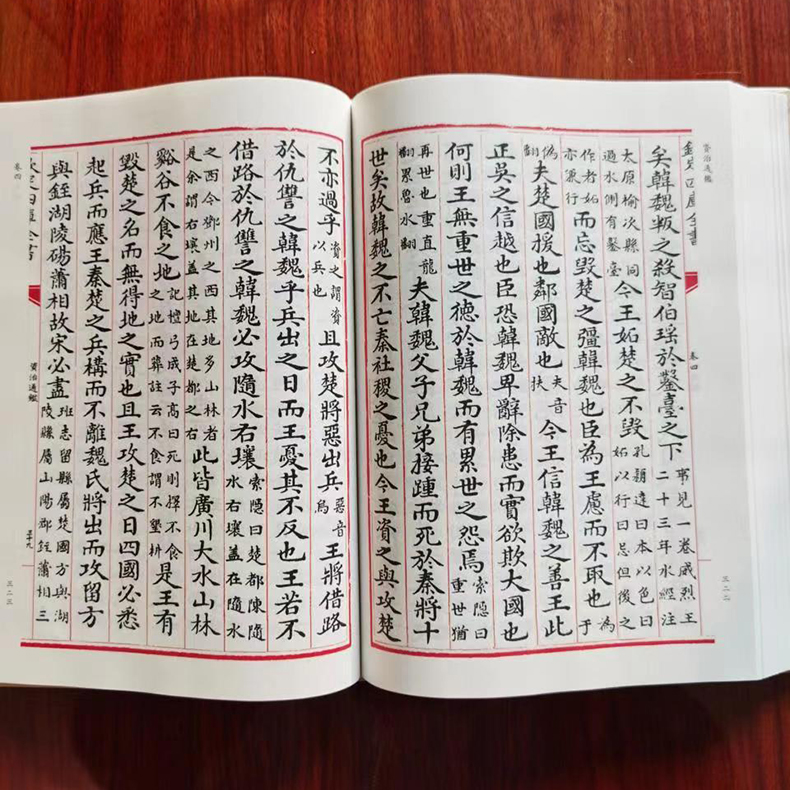 資治通鑑
卷四
三二二
四庫全書
卷四
矣韓魏叛之殺智伯瑤於鑿臺之下事見一卷威烈王二十三年水經注
太原榆次縣同過水側有鑿臺今王妬楚之不毁孔穎達曰本以色曰妬以行曰忌但後之
作者妬亦兼行而忘毁楚之彊韓魏也臣為王慮而不取也為于
偽翻夫楚國援也鄰國敵也夫音扶今王信韓魏之善王此
正吳之信越也臣恐韓魏卑辭除患而實欲欺大國也
何則王無重世之德於韓魏而有累世之怨焉索隠曰重世猶
再世也重直龍翻累魯水翻夫韓魏父子兄弟接踵而死於秦將十
世矣故韓魏之不亡秦社稷之憂也今王資之與攻楚
不亦過乎資之謂資以兵也且攻楚將惡出兵惡音烏王將借路
於仇讐之韓魏乎兵出之日而王憂其不反也王若不
借路於仇讐之韓魏必攻隨水右壤索隠曰楚都陳隨水右壤蓋在隨水
之西今鄧州之西其地多山林者是余謂右壤蓋其地在楚都之右此皆廣川大水山林
谿谷不食之地記檀弓成子髙曰死則擇不食之地而葬註云不食謂不墾耕是王有
毁楚之名而無得地之實也且王攻楚之日四國必悉
起兵而應王秦楚之兵構而不離魏氏將出而攻留方
與銍湖陵碭蕭相故宋必盡班志留縣屬楚國方與湖陵縣屬山陽郡銍蕭相三
定四庫全書
資治通鑑
卷四
三二三